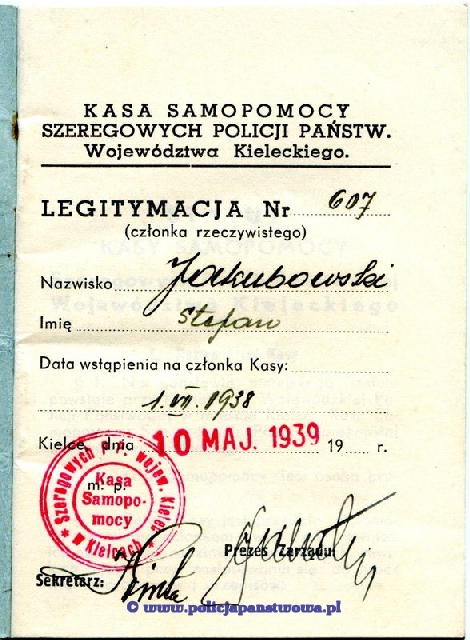 KASA SAMOPOMOCY
SZEREGOWYCH POLICJI PAŃSTW.
Województwa Kieleckiego.
LEGITYMACJA Nr 607
(członka rzeczywistego)
Nazwisko Jakubowski
Imię Stefan
Data wstąpienia na członka Kasy:
1.VII.1938
Kielce, dnia 10 MAJ. 1939 19 r.
m. p.
Szeregowych P.P. wojew. Kielec
w Kielcach
Kasa
Samopo-
mocy
Prezes Zarządu:
Sekretarz:
© www.policjapanstwowa.pl